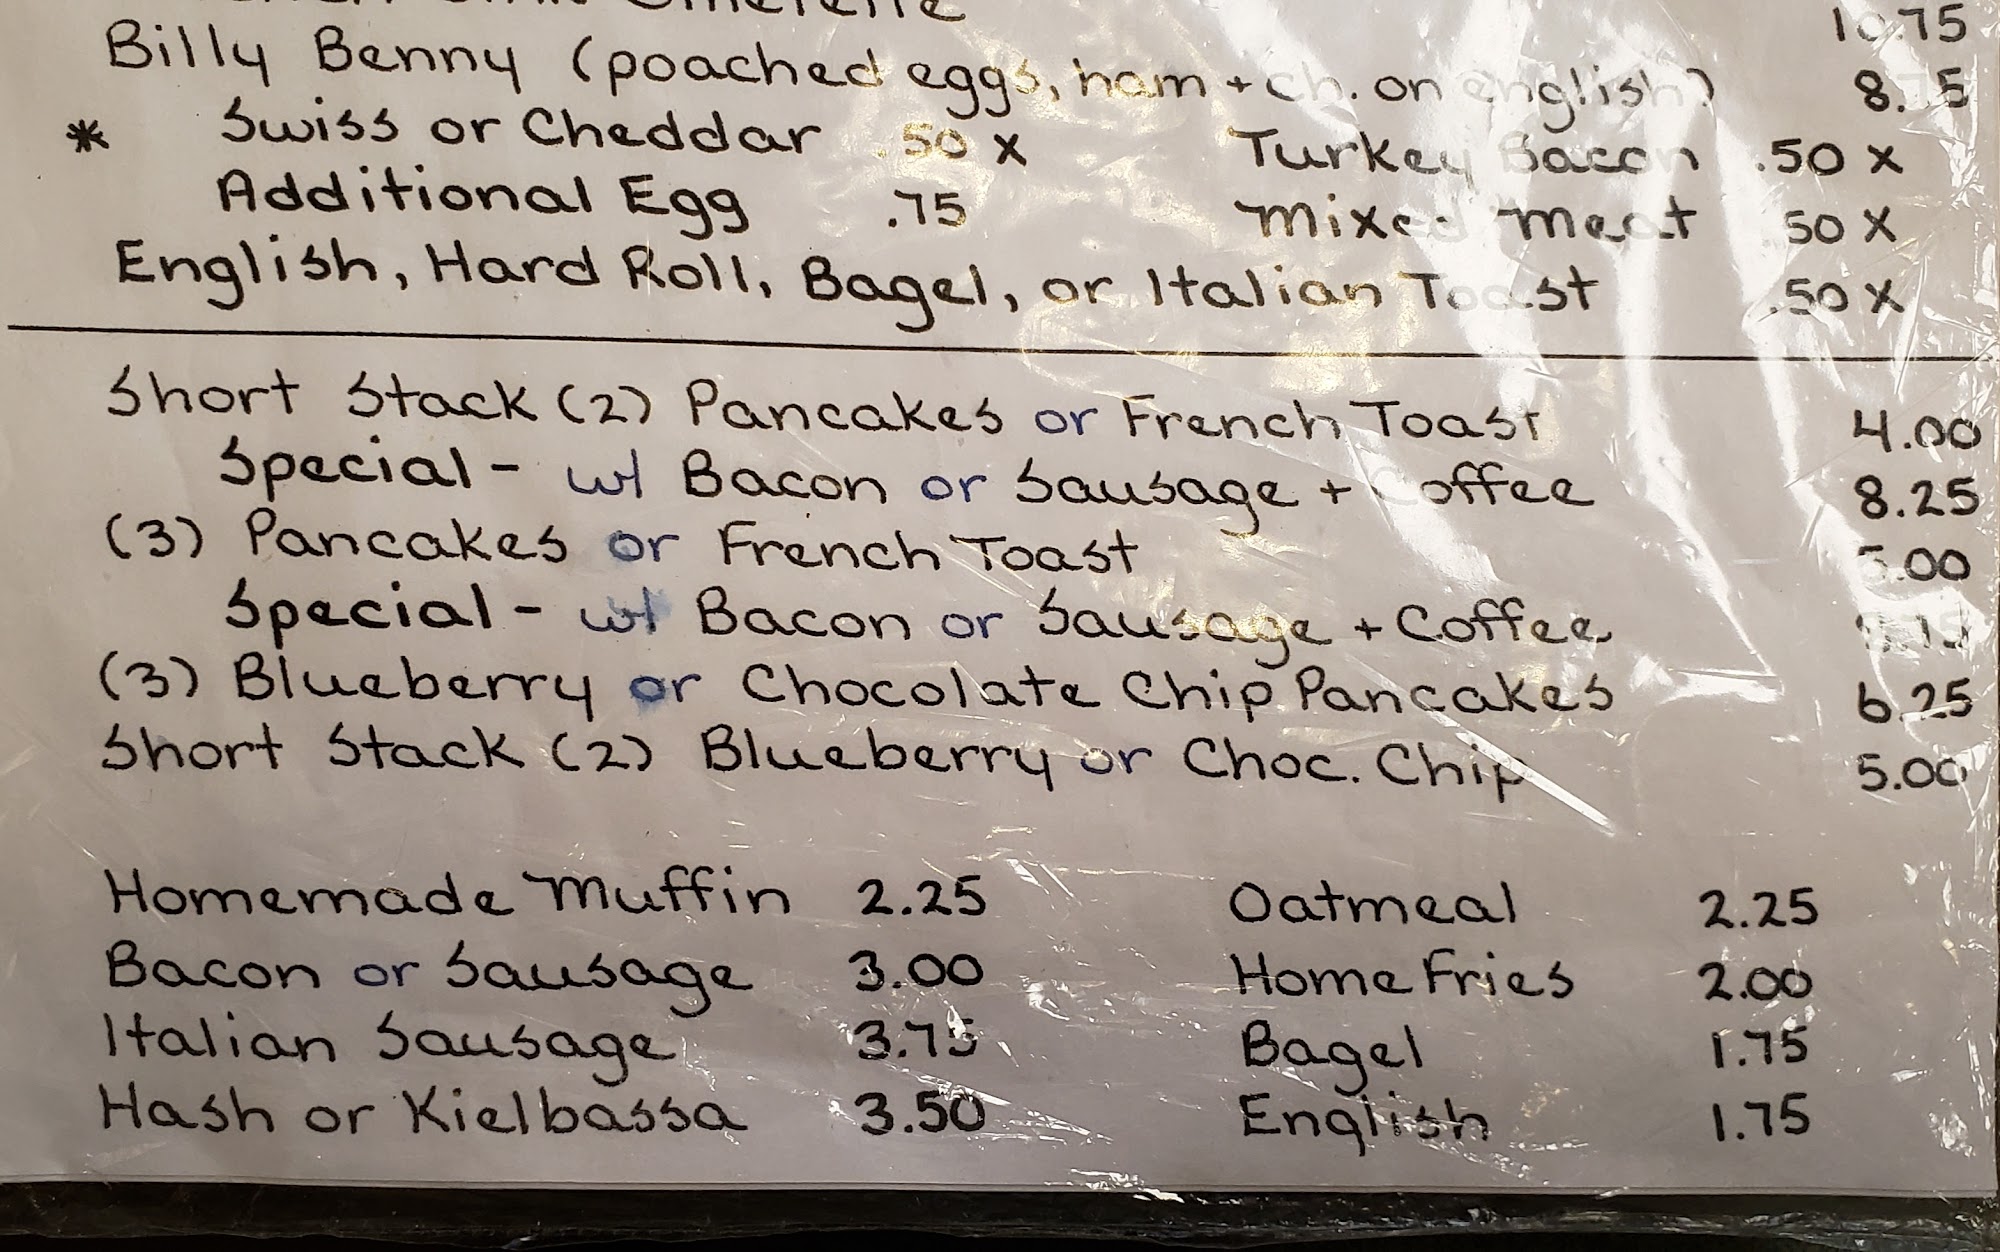 Omelette 10.75
Billy Benny (poached eggs, ham + ch. on english) 8.75
* Swiss or Cheddar .50 x Turkey Bacon .50 x
Additional Egg .75 Mixed Meat .50 x
English, Hard Roll, Bagel, or Italian Toast .50 x
Short Stack (2) Pancakes or French Toast 4.00
Special - w/ Bacon or Sausage + Coffee 8.25
(3) Pancakes or French Toast 5.00
Special - w/ Bacon or Sausage + Coffee
(3) Blueberry or Chocolate Chip Pancakes 6.25
Short Stack (2) Blueberry or Choc. Chip 5.00
Homemade Muffin 2.25 Oatmeal 2.25
Bacon or Sausage 3.00 Home Fries 2.00
Italian Sausage 3.75 Bagel 1.75
Hash or Kielbassa 3.50 English 1.75